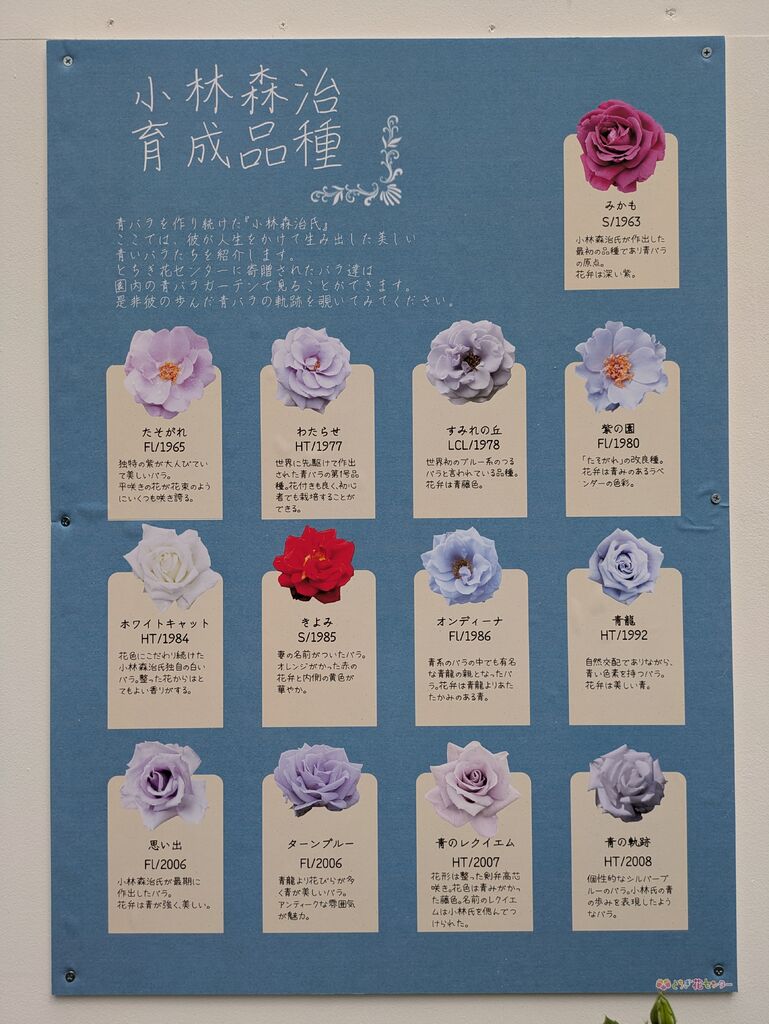 小林森治
育成品種
青バラを作り続けた『小林森治氏』
ここでは、彼が人生をかけて生み出した美しい
青いバラたちを紹介します。
とちぎ花センターに寄贈されたバラ達は
園内の青バラガーデンで見ることができます。
是非彼の歩んだ青バラの軌跡を覗いてみてください。
みかも
S/1963
小林森治氏が作出した
最初の品種であり青バラ
の原点。
花弁は深い紫。
たそがれ
Fl/1965
独特の紫が大人びてい
て美しいバラ。
平咲きの花が花束のよう
にいくつも咲き誇る。
わたらせ
HT/1977
世界に先駆けて作出
された青バラの第1号品
種。花付きも良く、初心
者でも栽培することが
できる。
すみれの丘
LCL/1978
世界初のブルー系のつる
バラと言われている品種。
花弁は青藤色。
紫の園
Fl/1980
「たそがれ」の改良種。
花弁は青みのあるラベ
ンダーの色彩。
ホワイトキャット
HT/1984
花色にこだわり続けた
小林森治氏独自の白い
バラ。整った花からはと
てもよい香りがする。
きよみ
S/1985
妻の名前がついたバラ。
オレンジがかった赤の
花弁と内側の黄色が
華やか。
オンディーナ
Fl/1986
青系のバラの中でも有名
な青龍の親となったバ
ラ。花弁は青龍よりあた
たかみのある青。
青龍
HT/1992
自然交配でありながら、
青い色素を持つバラ。
花弁は美しい青。
思い出
Fl/2006
小林森治氏が最期に
作出したバラ。
花弁は青が強く、美しい。
ターンブルー
Fl/2006
青龍より花びらが多
く青が美しいバラ。
アンティークな雰囲気
が魅力。
青のレクイエム
HT/2007
花形は整った剣弁高芯
咲き。花色は青みがかっ
た藤色。名前のレクイエ
ムは小林氏を偲んでつ
けられた。
青の軌跡
HT/2008
個性的なシルバーブ
ルーのバラ。小林氏の青
の歩みを表現したよう
なバラ。
とちぎ花センター